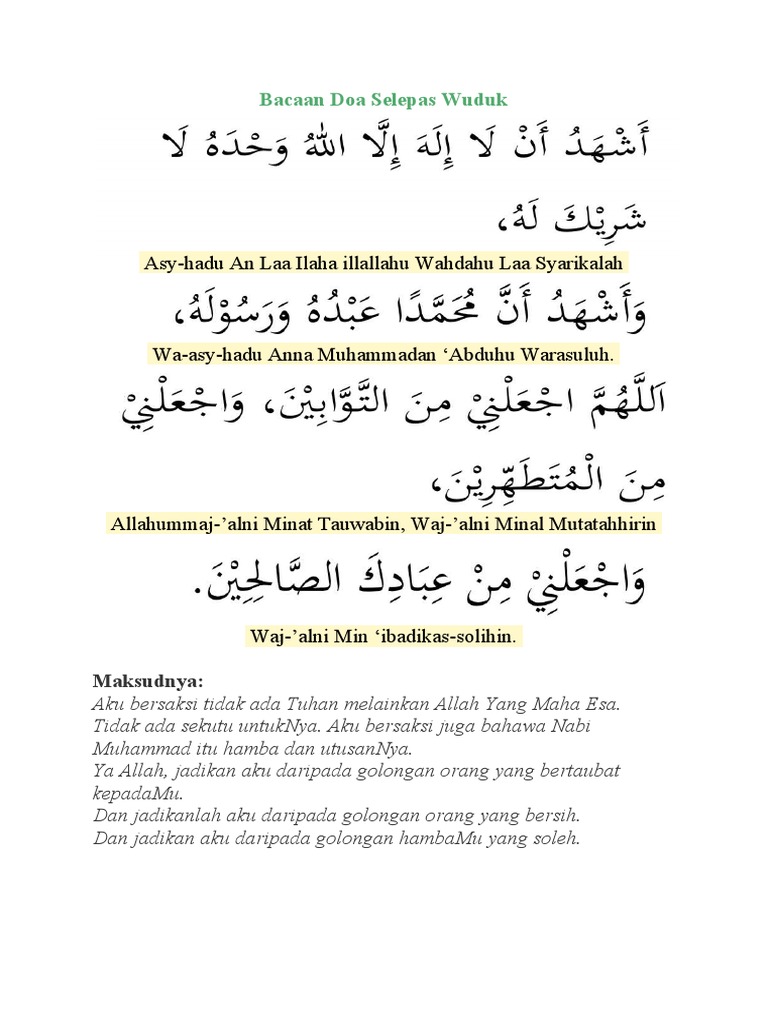 Bacaan Doa Selepas Wuduk
أَشْهَدُ أَنْ لَا إِلَهَ إِلَّا اللهُ وَحْدَهُ لَا
شَرِيْكَ لَهُ،
Asy-hadu An Laa Ilaha illallahu Wahdahu Laa Syarikalah
وَأَشْهَدُ أَنَّ مُحَمَّدًا عَبْدُهُ وَرَسُوْلَهُ،
Wa-asy-hadu Anna Muhammadan ‘Abduhu Warasuluh.
اَللَّهُمَّ اجْعَلْنِيْ مِنَ التَّوَّابِيْنَ، وَاجْعَلْنِيْ
مِنَ الْمُتَطَهِّرِيْنَ،
Allahummaj-’alni Minat Tauwabin, Waj-’alni Minal Mutatahhirin
وَاجْعَلْنِيْ مِنْ عِبَادِكَ الصَّالِحِيْنَ.
Waj-’alni Min ‘ibadikas-solihin.
Maksudnya:
Aku bersaksi tidak ada Tuhan melainkan Allah Yang Maha Esa.
Tidak ada sekutu untukNya. Aku bersaksi juga bahawa Nabi
Muhammad itu hamba dan utusanNya.
Ya Allah, jadikan aku daripada golongan orang yang bertaubat
kepadaMu.
Dan jadikanlah aku daripada golongan orang yang bersih.
Dan jadikan aku daripada golongan hambaMu yang soleh.